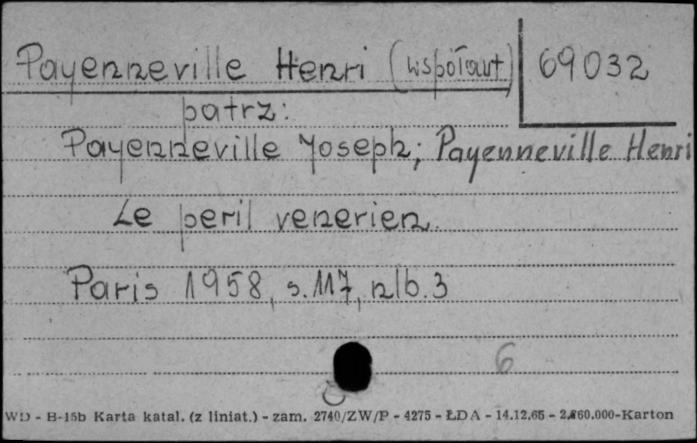 Payenneville Henri (współaut) 69032
patrz:
Payenneville Joseph; Payenneville Henri
Le peril venerien.
Paris 1958, s. 117, nlb. 3
6
WD - B-15b Karta katal. (z liniat.) - zam. 2740/ZW/P - 4275 - ŁDA - 14.12.65 - 2.860.000-Karton